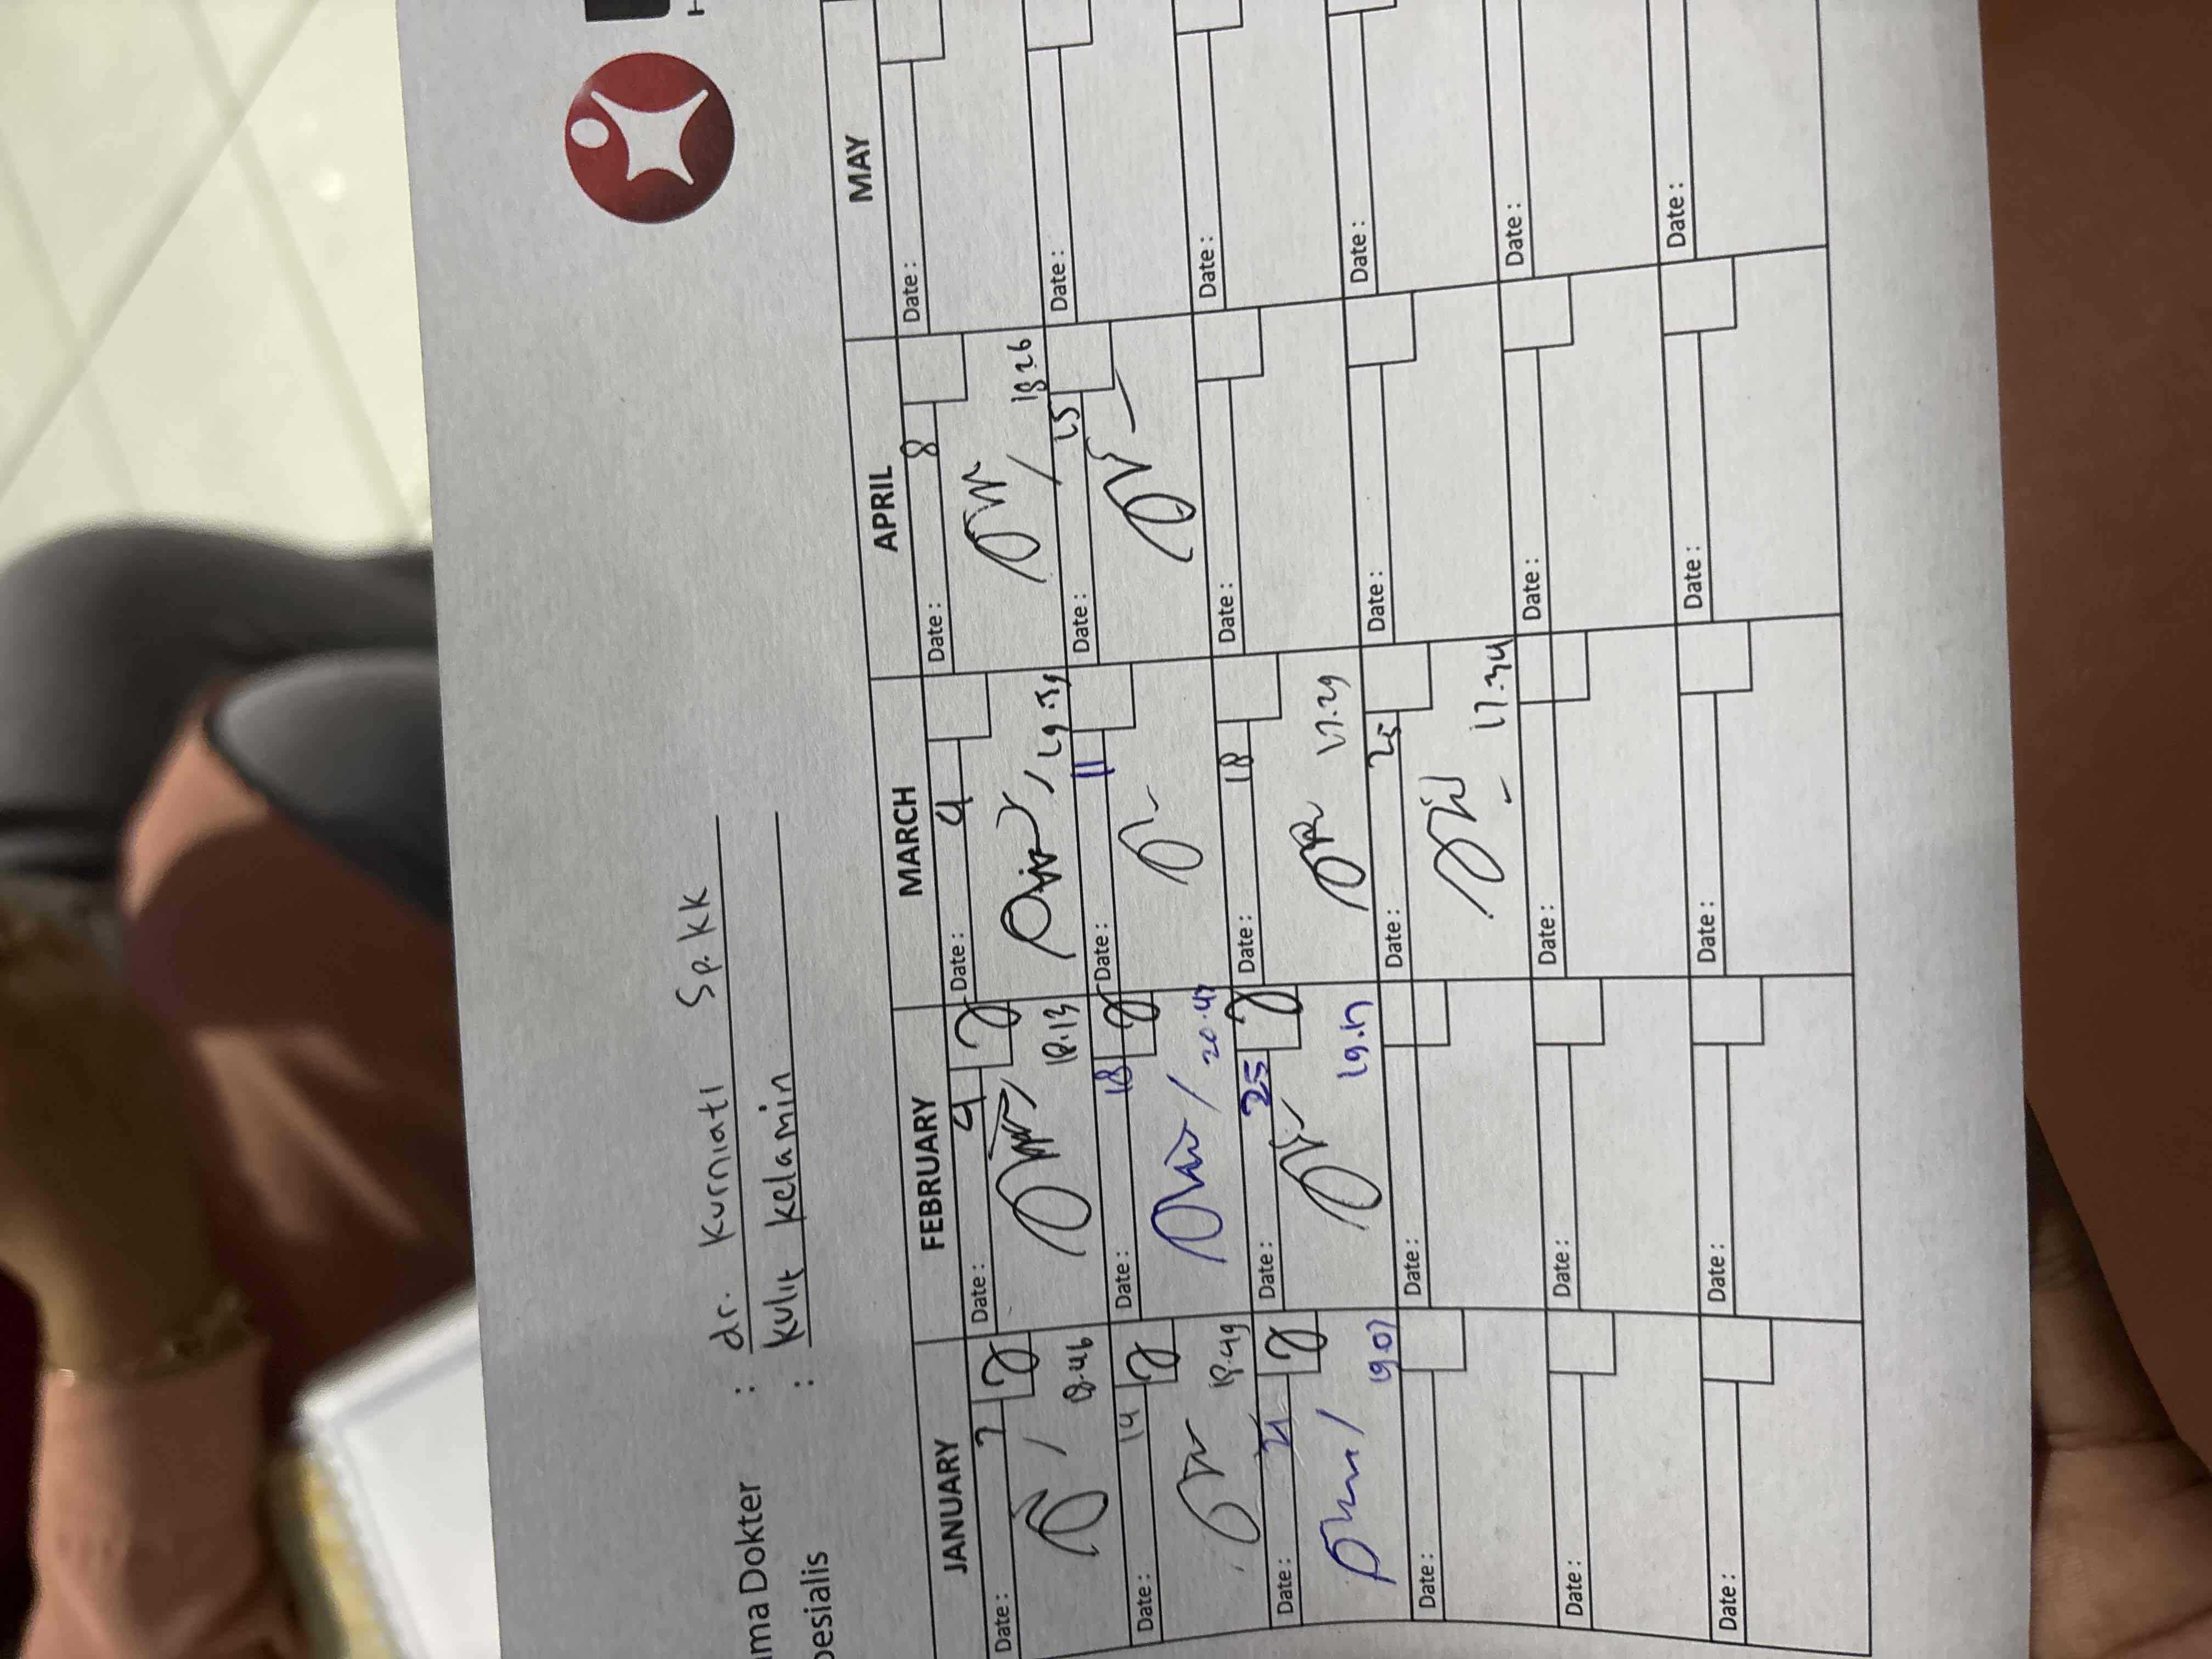 ma Dokter : dr. Kurniati Sp.KK
pesialis : Kulit Kelamin
JANUARY FEBRUARY MARCH APRIL MAY
Date : 7 Date : 4 Date : 4 Date : 8 Date :
18.46 18.13 19.59 18.26
Date : 14 Date : 18 Date : 11 Date : 15 Date :
18.49 20.47
Date : 21 Date : 25 Date : 18 Date : Date :
19.07 17.29
Date : Date : Date : 25 Date : Date :
17.34
Date : Date : Date : Date : Date :
Date : Date : Date : Date : Date :